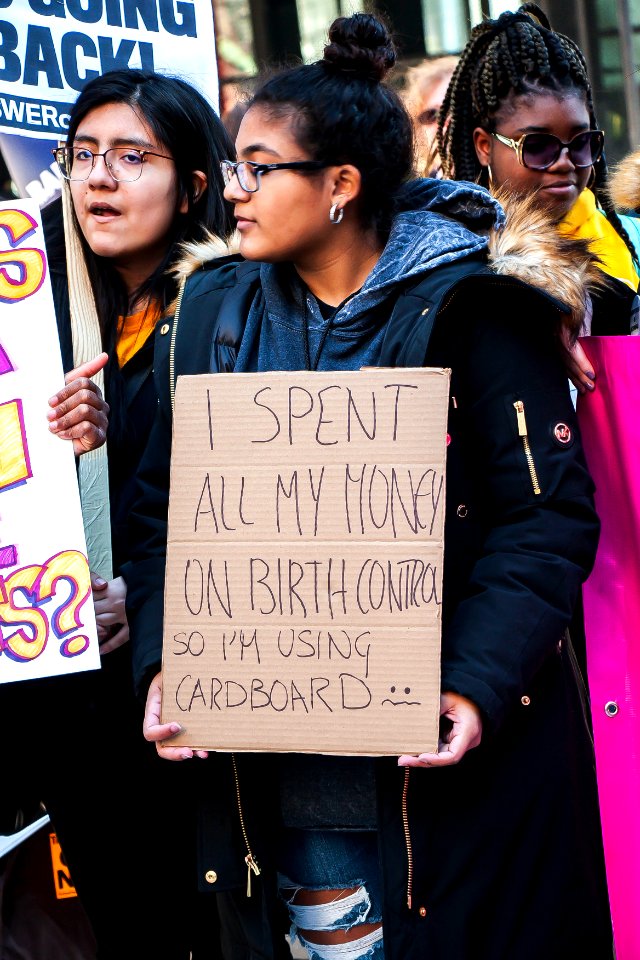 GOING
BACK!
I SPENT
ALL MY MONEY
ON BIRTH CONTROL
SO I'M USING
CARDBOARD